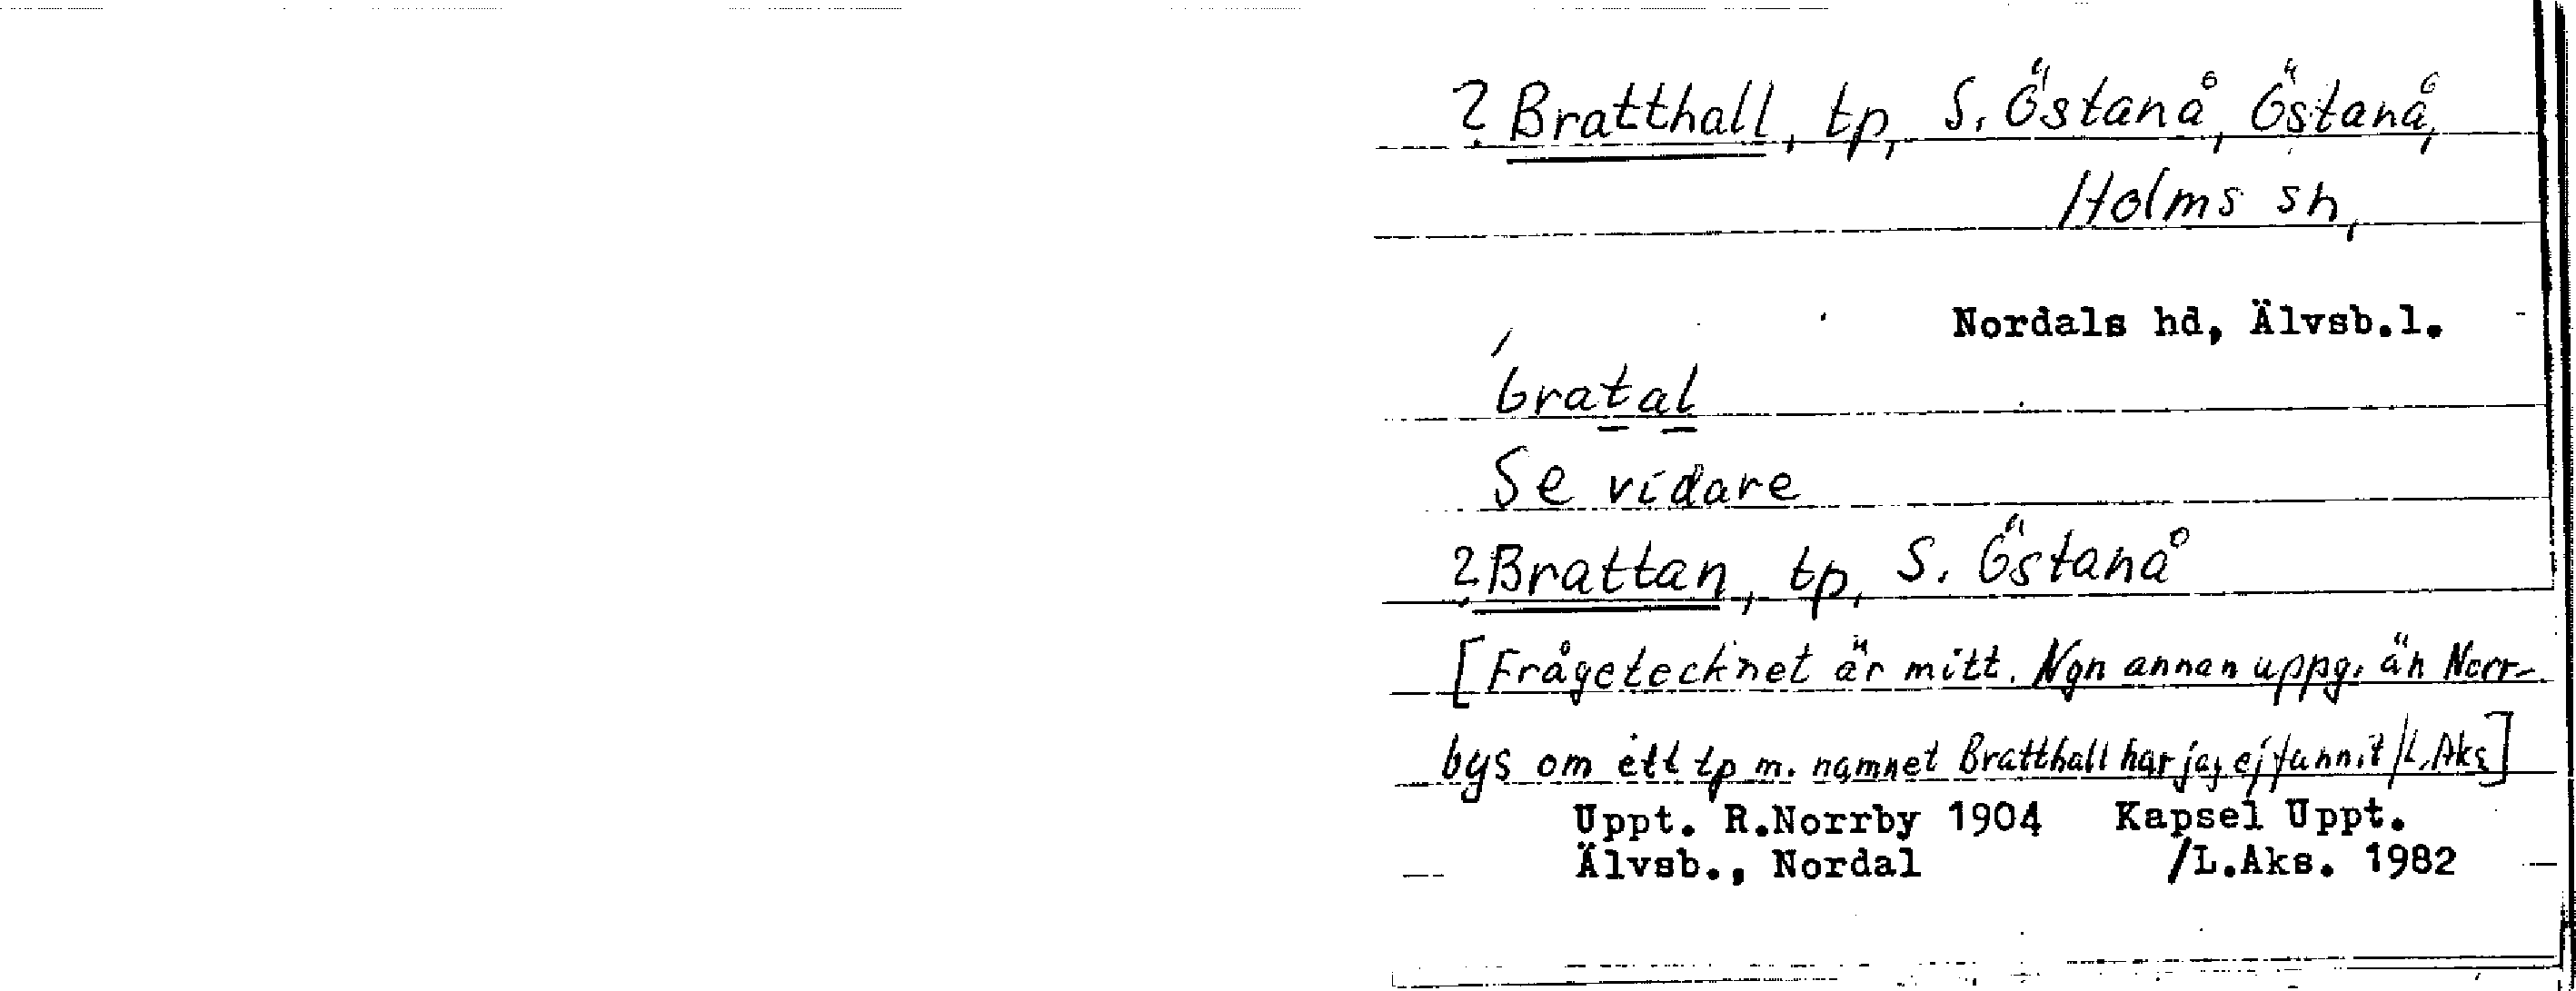 ? Bratthall, tp, S. Östanå, Östanå,
Holms sn,
Nordals hd, Älvsb.l.
ˊbratal
Se vidare
? Brattan, tp, S. Östanå
[Frågetecknet är mitt. Ngn annan uppg. än Norr-
bys om ett tp m. namnet Bratthall har jag ej funnit /L.Aks]
Uppt. R.Norrby 1904 Kapsel Uppt.
Älvsb., Nordal /L.Aks. 1982